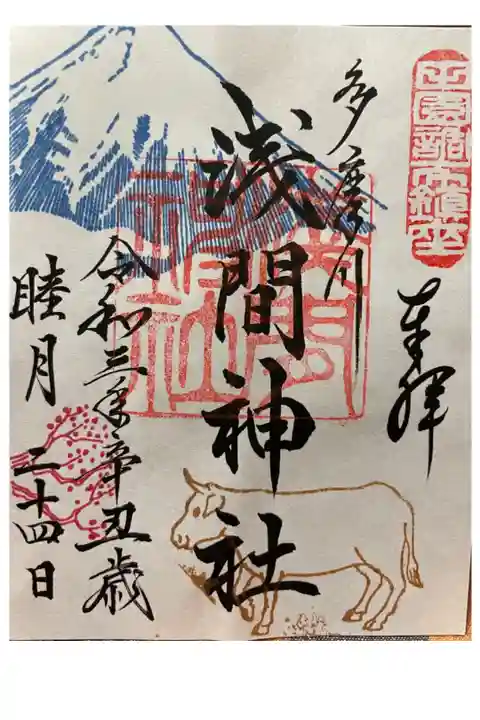 奉拝
多摩川
浅間神社
令和三年辛丑歳
睦月二十四日